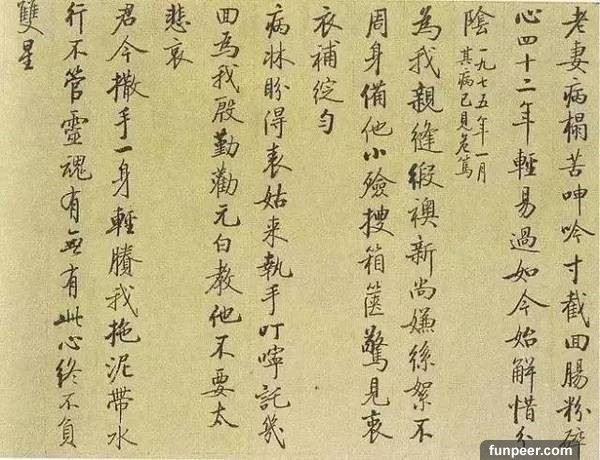 老妻病榻苦呻吟寸截回腸粉碎
心四十二年輕易過如今始解惜分
陰
一九七五年一月
其病已見危篤
為我親縫緞襖新尚嫌絲絮不
周身備他小殮搜箱篋驚見衷
衣補綻勻
病牀盼得表姑来執手叮嚀託幾
回為我殷勤勸元白教他不要太
悲哀
君今撒手一身輕賸我拖泥帶水
行不管靈魂有無有此心終不負
雙星
funpeer.com